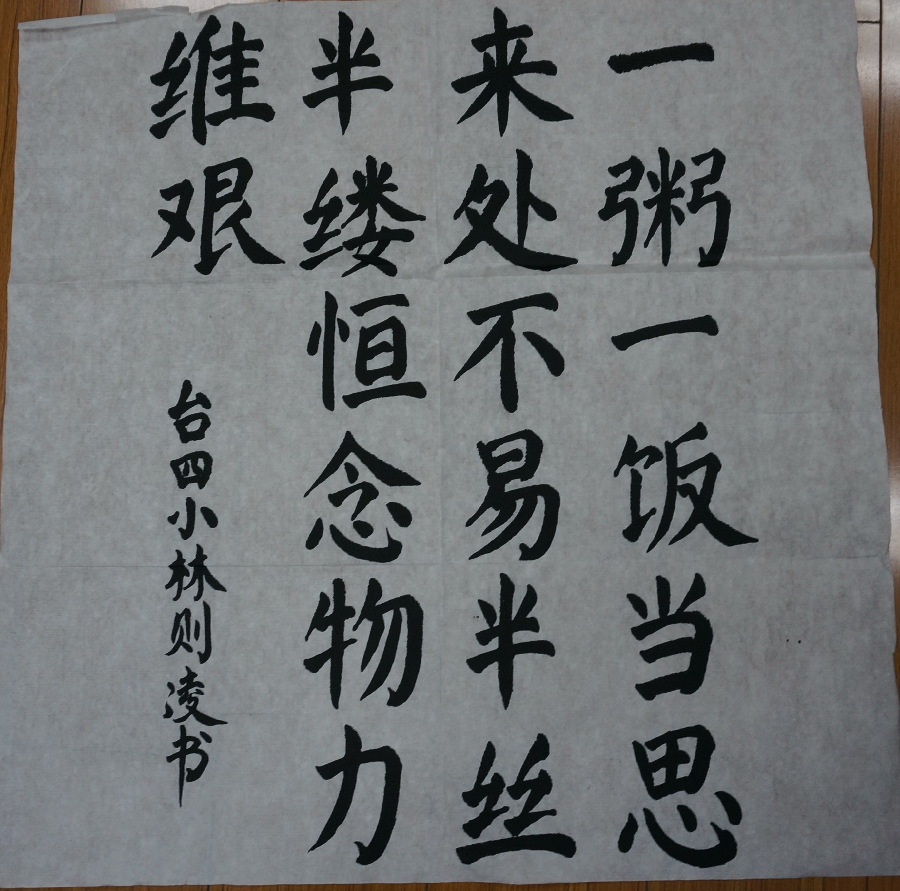 一粥一饭当思
来处不易半丝
半缕恒念物力
维艰
台四小林则凌书